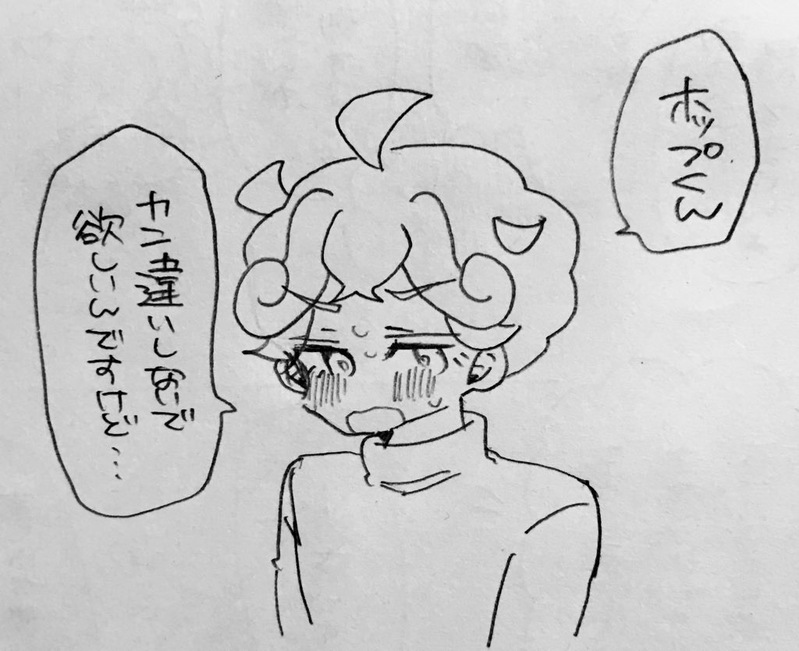 ホップくん
カン違いしないで
欲しいんですけど…